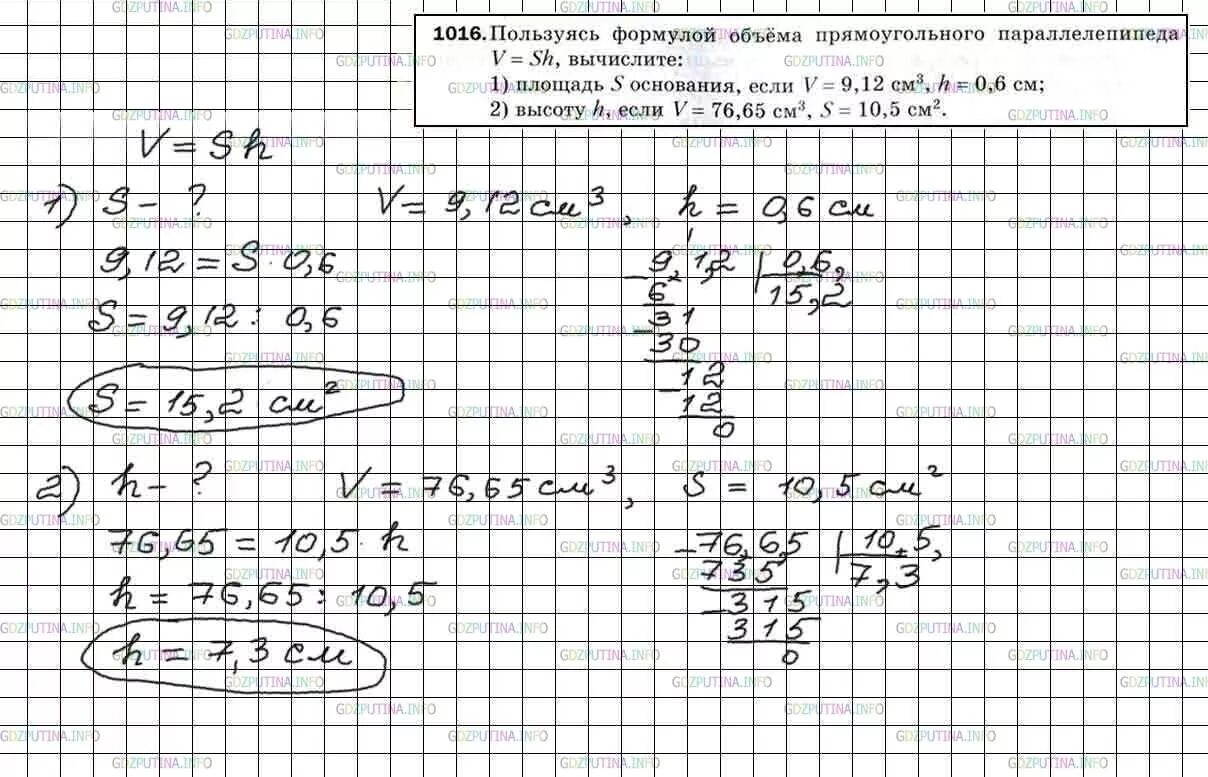 1016. Пользуясь формулой объёма прямоугольного параллелепипеда
V = Sh, вычислите:
1) площадь S основания, если V = 9,12 см³, h = 0,6 см;
2) высоту h, если V = 76,65 см³, S = 10,5 см².
V = Sh
1) S - ? V = 9,12 см³, h = 0,6 см
9,12 = S · 0,6
S = 9,12 : 0,6
S = 15,2 см²
9,1,2 | 0,6,
6 15,2
31
30
12
12
0
2) h - ? V = 76,65 см³, S = 10,5 см²
76,65 = 10,5 · h
h = 76,65 : 10,5
h = 7,3 см
76,6,5 | 10,5,
735 7,3
315
315
0
GDZPUTINA.INFO